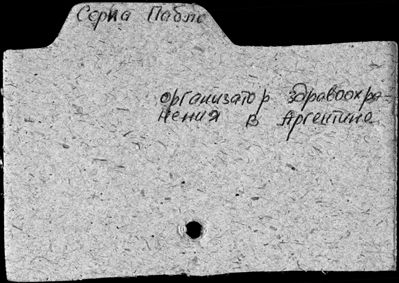 Серна Пабло
организатор здравоохра-
нения в Аргентине